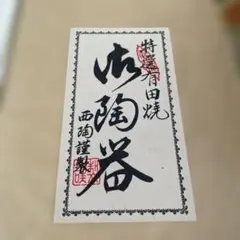 特選有田焼
御陶器
西陶謹製